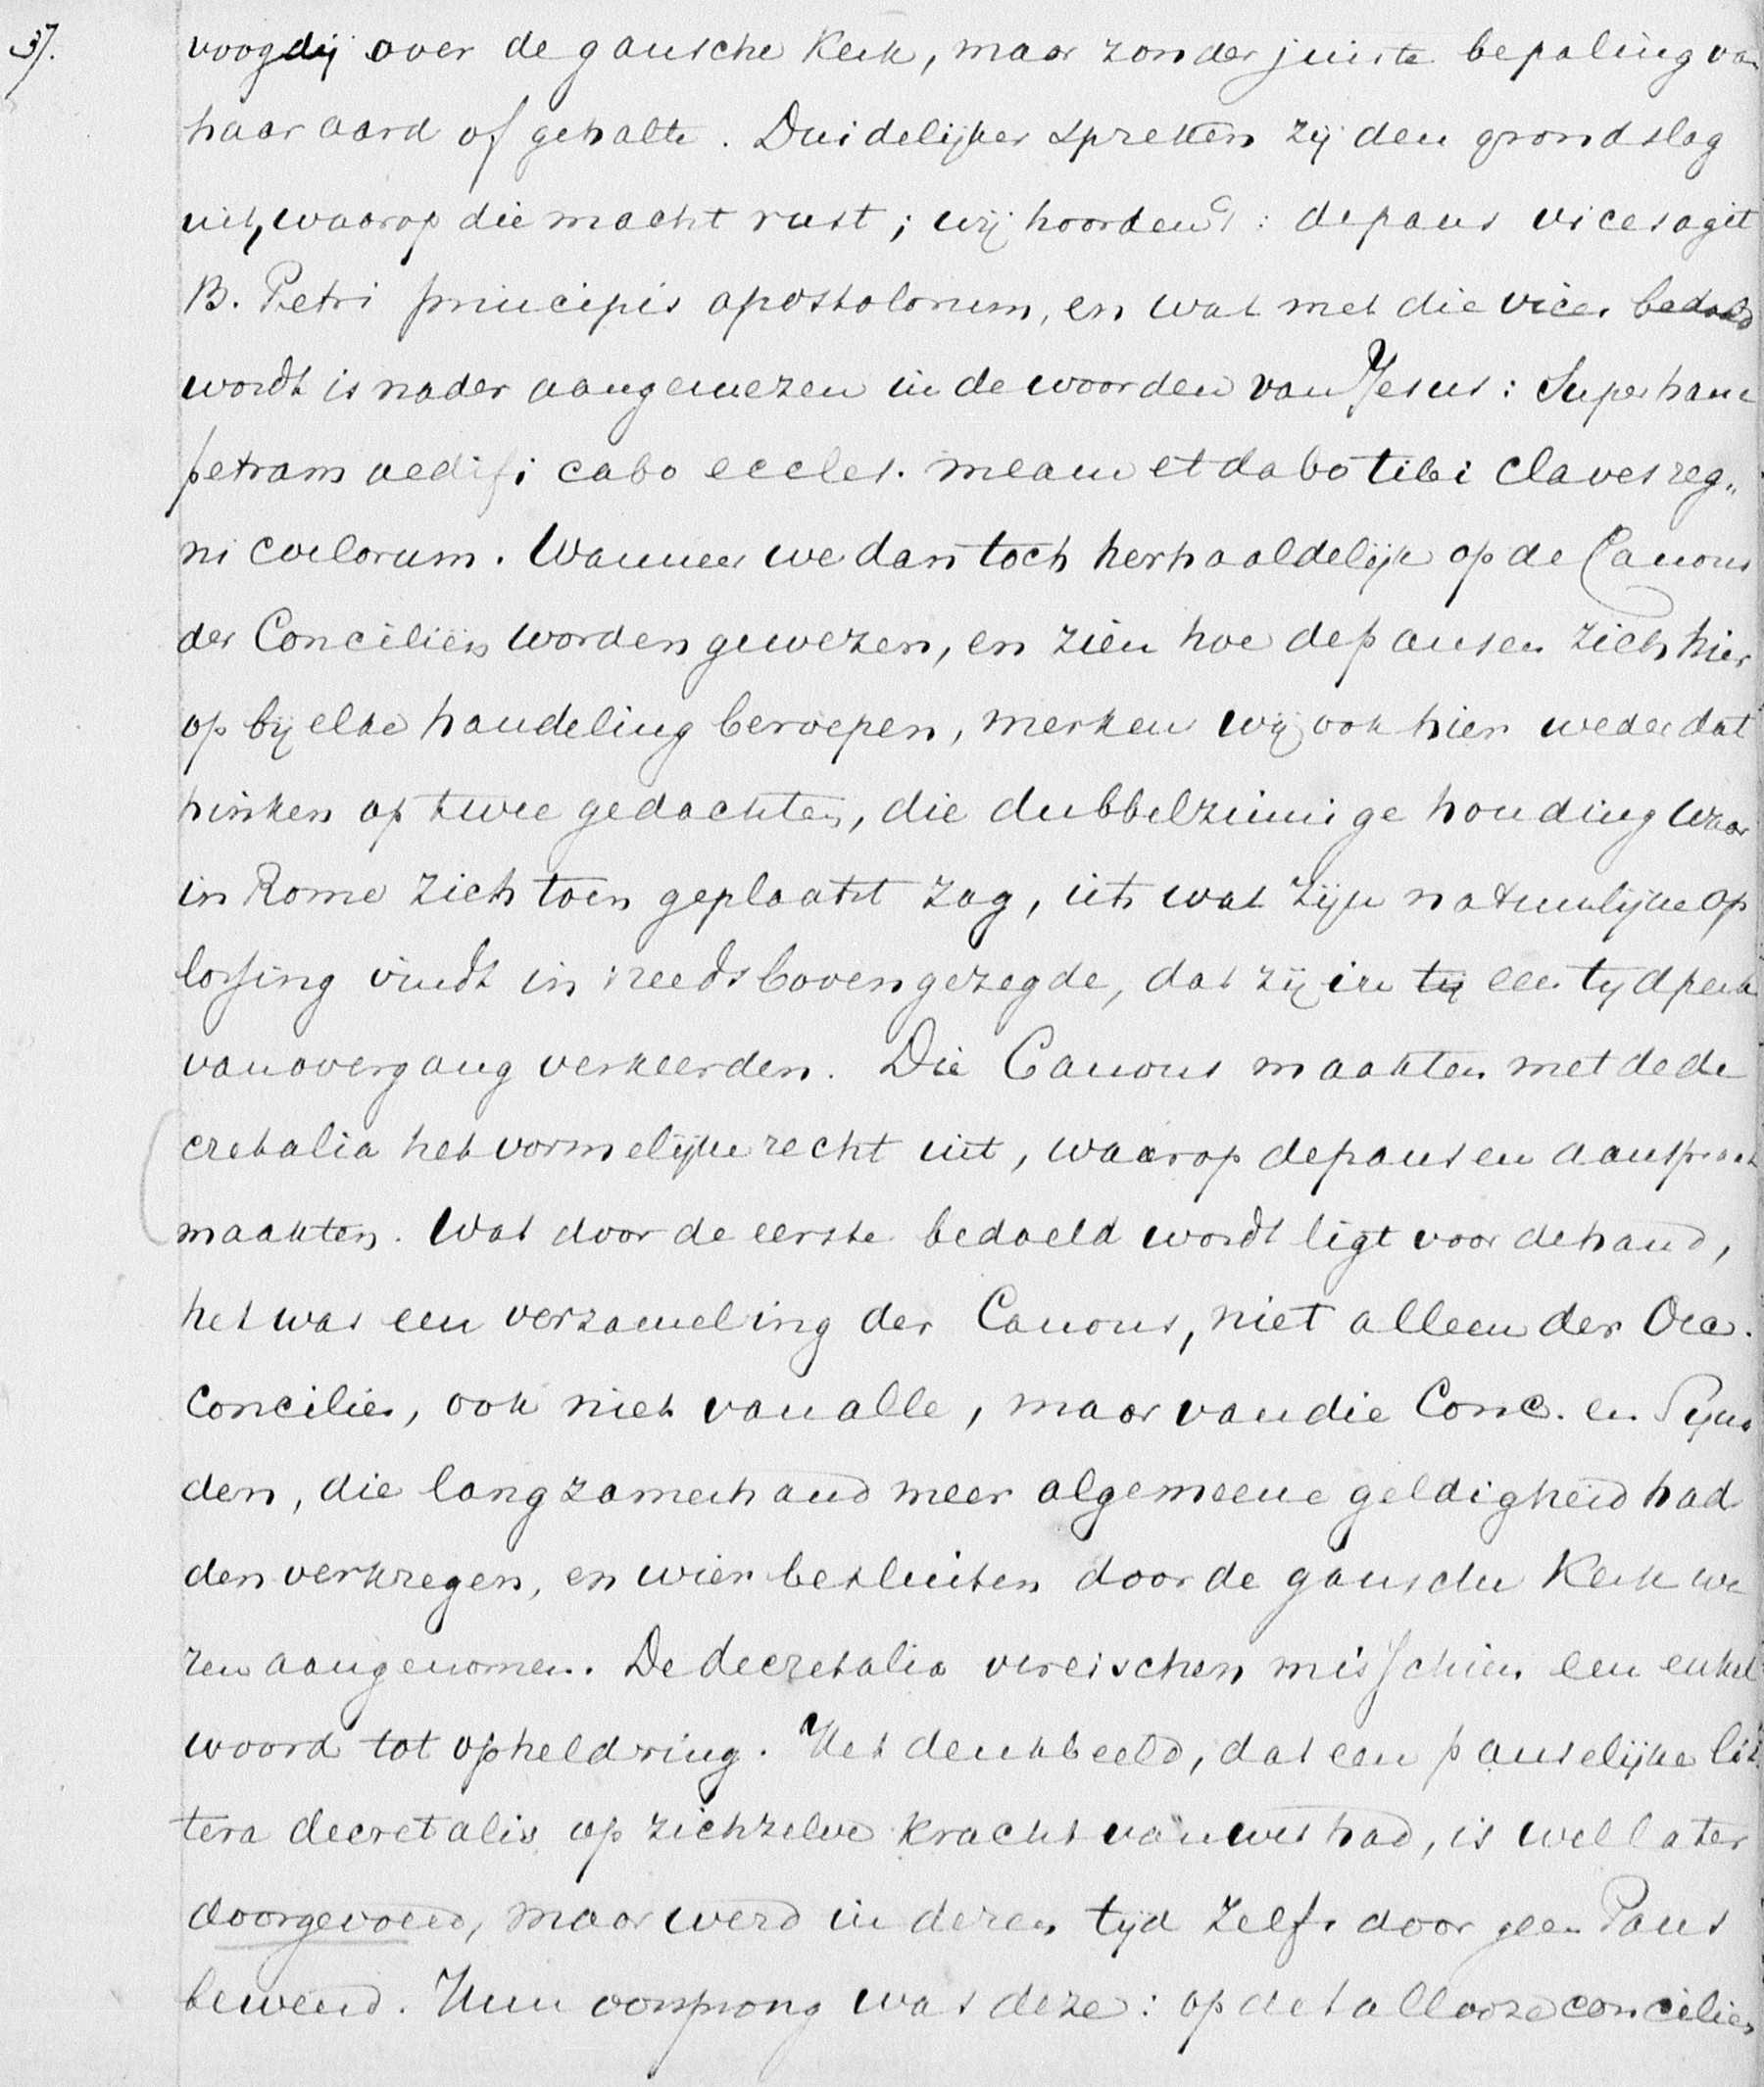 37.
voogdij over de gansche Kerk, maar zonder juiste bepaling van
haar aard of gehalte. Duidelijker spreken zij den grondslag
uit, waarop die macht rust; wij hoorden 't: de paus vices agit
B. Petri principis apostolorum, en wat met die vices bedoeld
wordt is nader aangewezen in de woorden van Jesus: Super hanc
petram aedificabo eccles. meam et dabo tibi claves reg„
ni coelorum. Wanneer we dan toch herhaaldelijk op de Canons
der Conciliën worden gewezen, en zien hoe de pausen zich hier
op bij elke handeling beroepen, merken wij ook hier weder dat
hinken op twee gedachten, die dubbelzinnige houding waar
in Rome zich toen geplaatst zag, iets wat zijn natuurlijke op
lossing vindt in reeds bovengezegde, dat zij in tij een tijdperk
van overgang verkeerden. Die Canons maakten met de de
cretalia het vormelijke recht uit, waarop de pausen aanspraak
maakten. Wat door de eerste bedoeld wordt ligt voor de hand,
het was een verzameling der Canons, niet alleen der Oec.
Concilies, ook niet van alle, maar van die Conc. en Syno
den, die langzamerhand meer algemeene geldigheid had
den verkregen, en wier besluiten door de gansche Kerk wa
ren aangenomen. De decretalia vereischen misschien een enkel
woord tot opheldring. Het denkbeeld, dat een pauselijke lit
tera decretalis op zichzelve kracht van wet had, is wel later
doorgevoerd, maar werd in dezen tijd zelfs door geen Paus
beweerd. Hun oorsprong was deze: op de tallooze concilies